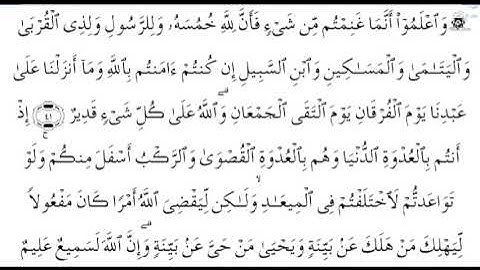 وَٱعْلَمُوٓا۟ أَنَّمَا غَنِمْتُم مِّن شَىْءٍ فَأَنَّ لِلَّهِ خُمُسَهُۥ وَلِلرَّسُولِ وَلِذِى ٱلْقُرْبَىٰ
وَٱلْيَتَـٰمَىٰ وَٱلْمَسَـٰكِينِ وَٱبْنِ ٱلسَّبِيلِ إِن كُنتُمْ ءَامَنتُم بِٱللَّهِ وَمَآ أَنزَلْنَا عَلَىٰ
عَبْدِنَا يَوْمَ ٱلْفُرْقَانِ يَوْمَ ٱلْتَقَى ٱلْجَمْعَانِ ۗ وَٱللَّهُ عَلَىٰ كُلِّ شَىْءٍ قَدِيرٌ ٤١ إِذْ
أَنتُم بِٱلْعُدْوَةِ ٱلدُّنْيَا وَهُم بِٱلْعُدْوَةِ ٱلْقُصْوَىٰ وَٱلرَّكْبُ أَسْفَلَ مِنكُمْ ۚ وَلَوْ
تَوَاعَدتُّمْ لَٱخْتَلَفْتُمْ فِى ٱلْمِيعَـٰدِ ۙ وَلَـٰكِن لِّيَقْضِىَ ٱللَّهُ أَمْرًا كَانَ مَفْعُولًا
لِّيَهْلِكَ مَنْ هَلَكَ عَنۢ بَيِّنَةٍ وَيَحْيَىٰ مَنْ حَىَّ عَنۢ بَيِّنَةٍ ۗ وَإِنَّ ٱللَّهَ لَسَمِيعٌ عَلِيمٌ